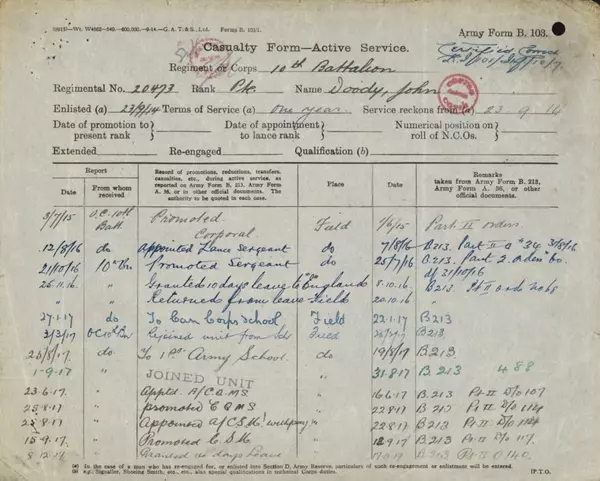 Army Form B. 103.
Casualty Form—Active Service.
Regiment or Corps 10th Battalion
Regimental No. 20473 Rank Pte. Name Doody, John
Enlisted (a) 23/9/14 Terms of Service (a) one year. Service reckons from (a) 23 . 9 . 14
Date of promotion to present rank Date of appointment to lance rank Numerical position on roll of N.C.Os.
Extended Re-engaged Qualification (b)
Report
Record of promotions, reductions, transfers, casualties, etc., during active service, as reported on Army Form B. 213, Army Form A. 36, or in other official documents. The authority to be quoted in each case.
Place
Date
Remarks taken from Army Form B. 213, Army Form A. 36, or other official documents.
Date From whom received
3/7/15 O.C. 10th Batt. Promoted Corporal Field 1/6/15 Part II orders
12/8/16 do Appointed Lance Sergeant do 7/8/16 B213. Part II O 34 3/8/16
21/10/16 10th Bn Promoted Sergeant do 25/7/16 B.213. Part 2. Orders
d/ 31/10/16
26.11.16. " Granted 10 days leave to England 8.10.16 B213
" " Returned from leave Field 20.10.16 "
27.1.17 do To Can Corps School Field 22.1.17 B213
3/3/17 OC 10th Bn Rejoined unit from Field B213.
25/8/17. do To 1st Army School. do 19/8/17 B213
1-9-17 " JOINED UNIT 31.8.17 B 213 488
23.6.17. " Apptd. A/C.Q.M.S. " 16.6.17 B.213 Pt II D/O 107
25.8.17 " promoted C.Q.M.S " 22.8.17 B.213 Pt II D/O 114
25.8.17 " Appointed A/C.S.M. with pay " 22.8.17 B.213 Pt II D/O 114
15.9.17. " Promoted C.S.M. " 12.9.17 B.213 Pt II D/O 117.
8.12.17 " Granted 14 days leave " B 213 Pt II O 140.
(a) In the case of a man who has re-engaged for, or enlisted into Section D, Army Reserve, particulars of such re-engagement or enlistment will be entered.
(b) e.g., Signaller, Shoeing Smith, etc., etc., also special qualifications in technical Corps duties.
[P.T.O.